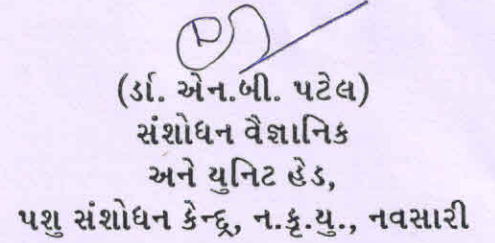 (ર્ડા. એન.બી. પટેલ)
સંશોધન વૈજ્ઞાનિક
અને યુનિટ હેડ,
પશુ સંશોધન કેન્દ્ર, ન.કૃ.યુ., નવસારી